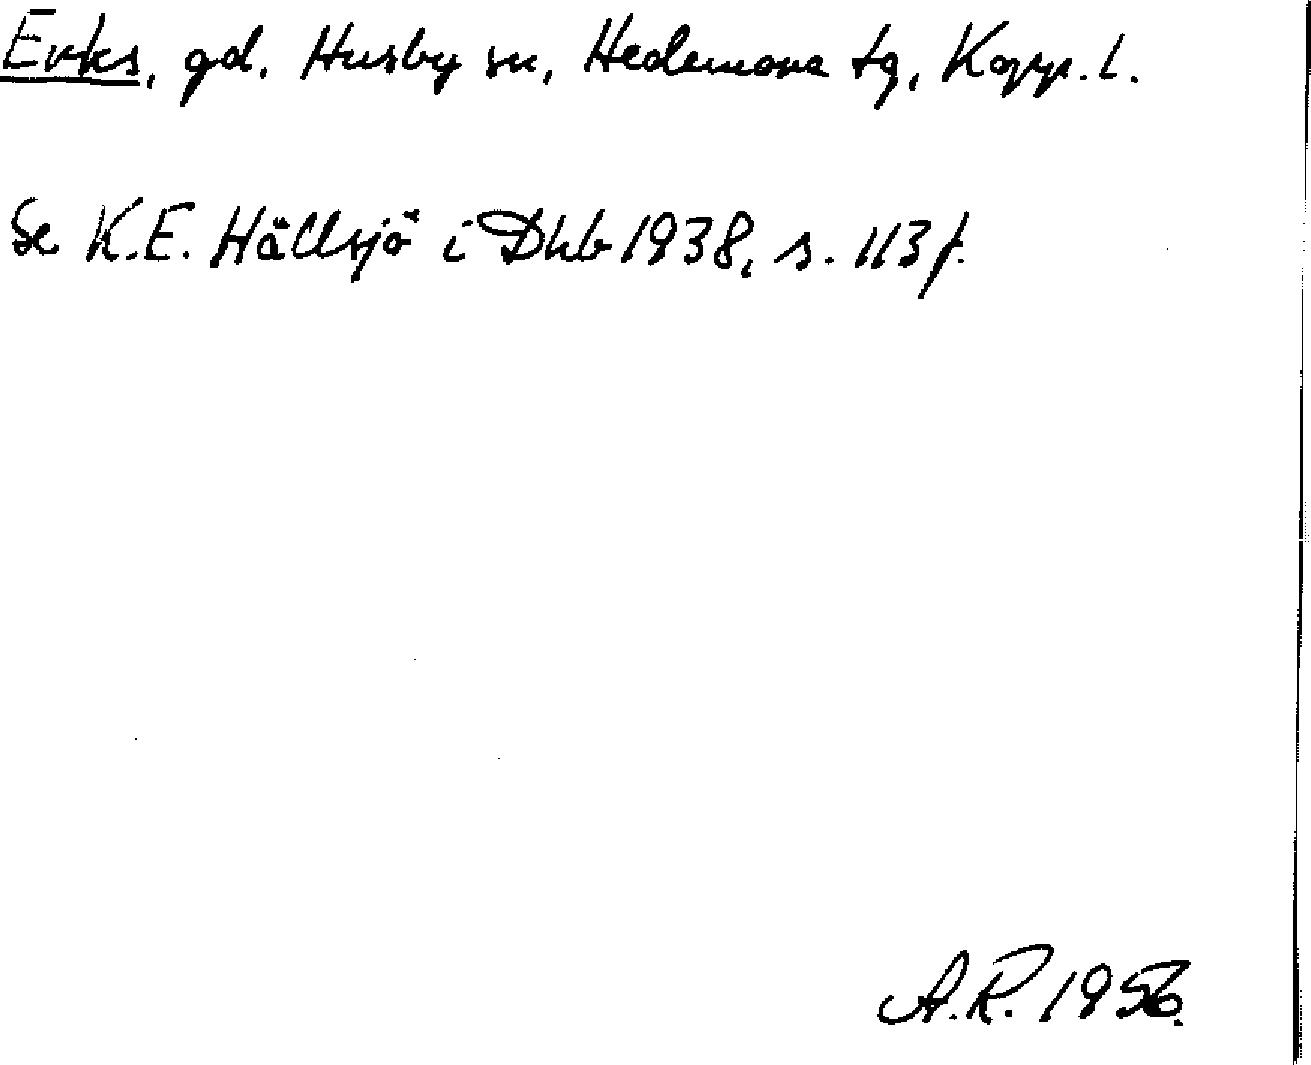 Erks, gd. Husby sn, Hedemora tg, Kopp. l.
Se K.E. Hällsjö i Dhb 1938, s. 113 f.
A.R. 1956.